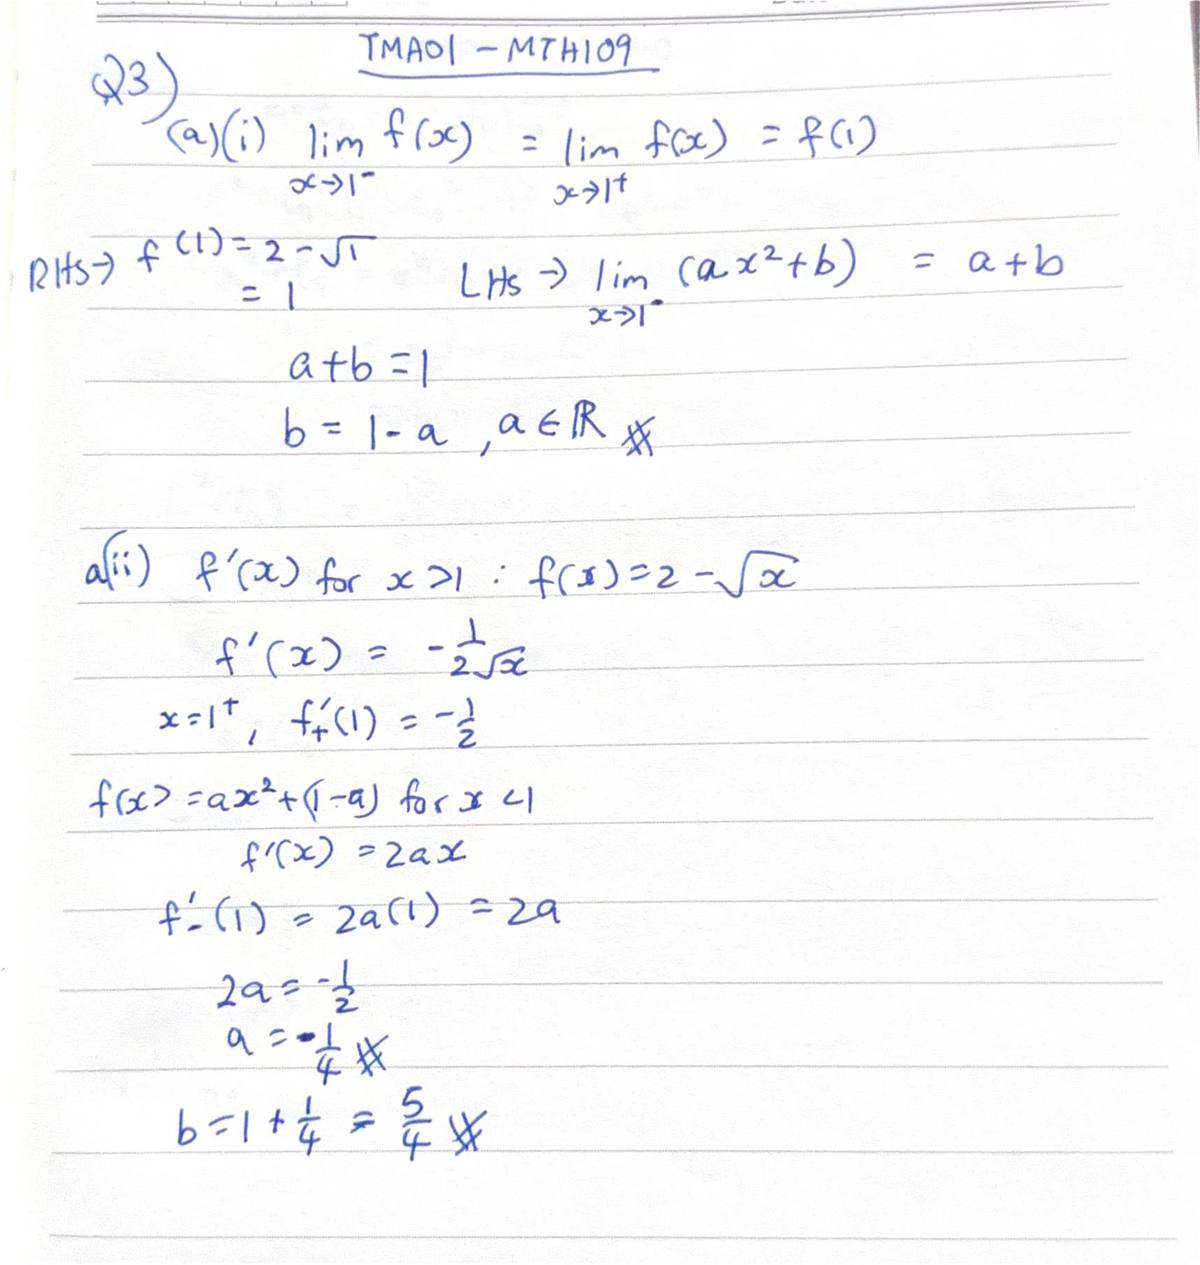 TMA01 - MTH109
Q3)
(a)(i) lim f(x) = lim f(x) = f(1)
x→1⁻ x→1⁺
RHS → f(1) = 2 - √1 LHS → lim (ax²+b) = a+b
= 1 x→1⁻
a+b = 1
b = 1-a , a ∈ ℝ
a(ii) f'(x) for x>1 : f(x) = 2 - √x
f'(x) = - 1/2√x
x=1⁺, f₊'(1) = -1/2
f(x) = ax²+(1-a) for x<1
f'(x) = 2ax
f₋'(1) = 2a(1) = 2a
2a = -1/2
a = -1/4
b = 1 + 1/4 = 5/4